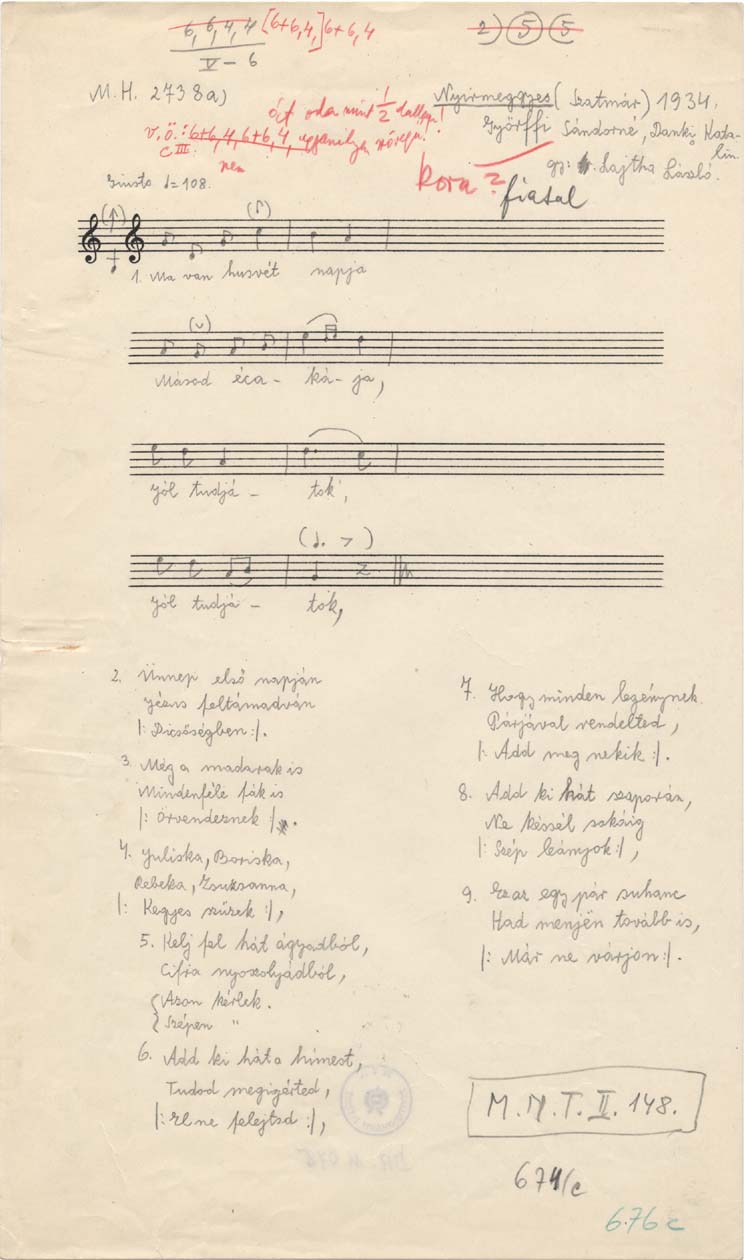 6, 6, 4, 4 [6+6,4,] 6+6,4
V – 6
2) 5 5
M. H. 2738a)
Nyirmeggyes (Szatmár) 1934.
óct oda mint 1/2 dallam!
Győrffi Sándorné, Danki Kata-
lin.
v. ö.: 6+6,4,6+6,4, ugyanilyen szöveggel.
C III.
nem
gy: Lajtha László.
kora ?
fiatal
Giusto ♩=108.
1. Ma van husvét napja
Másod éca - ká - ja,
Jól tudjá - tok,
Jól tudjá - tók,
2. Ünnep első napján
Jézus feltámadván
|: Dicsőségben :|.
3. Még a madarak is
Mindenféle fák is
|: Örvendeznek :|.
4. Juliska, Boriska,
Rebeka, Zsuzsanna,
|: Kegyes szűzek :|,
5. Kelj fel hát ágyadból,
Cifra nyoszolyádból,
Azon kérlek.
Szépen "
6. Add ki hát a hímest,
Tudod megigérted,
|: El ne felejtsd :|,
7. Hogy minden legénynek
Párjával rendelted,
|: Add meg nekik :|.
8. Add ki hát szaporán,
Ne késsél sokáig
|: Szép leányok :|,
9. Ez az egy pár suhanc
Had menjën tovább is,
|: Már ne várjon :|.
M. N. T. II. 148.
671/c
676 c